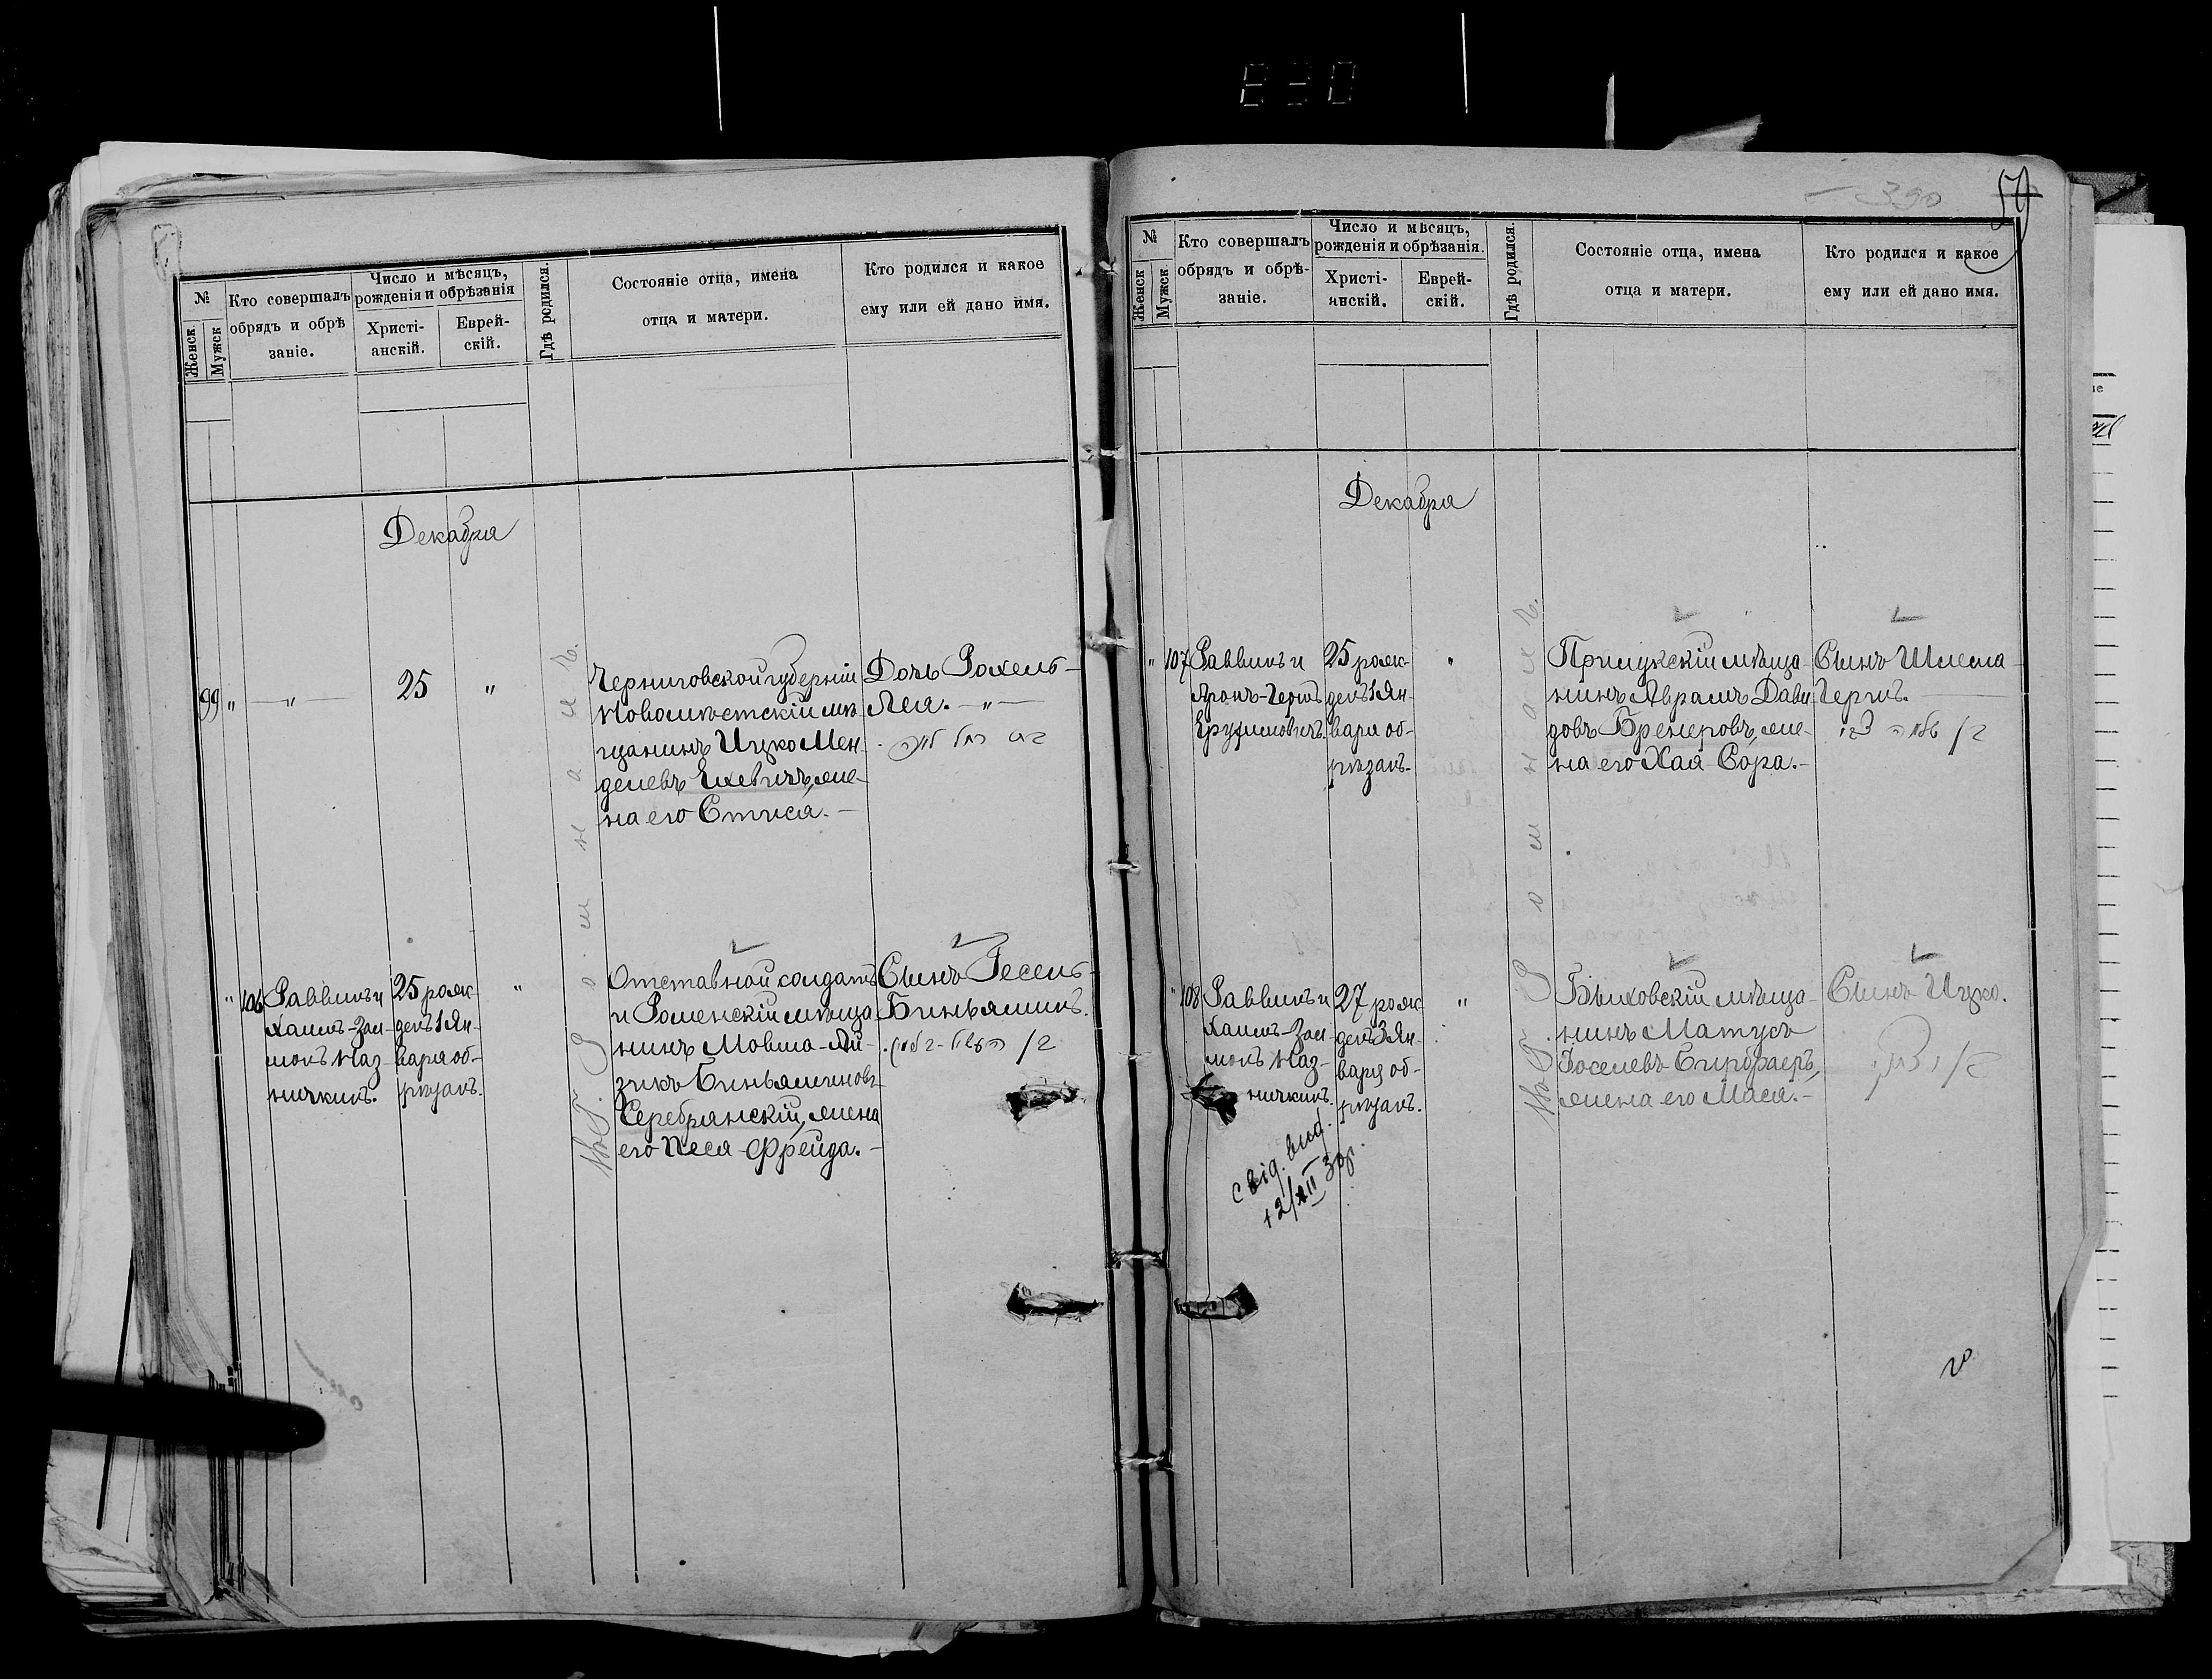 830
№
Женск.
Мужск
Кто совершалъ
обрядъ и обрѣ
заніе.
Число и мѣсяцъ,
рожденія и обрѣзанія
Христі-
анскій.
Еврей-
скій.
Гдѣ родился.
Состояніе отца, имена
отца и матери.
Кто родился и какое
ему или ей дано имя.
Декабря
99 " — " — 25 "
Черниговской губерніи
Новомѣстскій мѣ-
щанинъ Ицко Мен-
делевъ Ехевичъ, же-
на его Стися. —
Дочь Рохель-
Лея. — " —
רחל לאה
Въ Г. Р о м н а х ъ.
" 106
Раввинъ и
Хаимъ-Зал-
монъ Каз-
ничкинъ.
25 рож-
денъ 1 Ян-
варя об-
рѣзанъ.
"
Отставной солдатъ
и Роменскій мѣща-
нинъ Мовша-Ай-
зикъ Биньяминовъ
Серебрянскій, жена
его Песя-Фрейда. —
Сынъ Гесель-
Биньяминъ.
390
59
№
Женск
Мужск
Кто совершалъ
обрядъ и обрѣ-
заніе.
Число и мѣсяцъ,
рожденія и обрѣзанія.
Христі-
янскій.
Еврей-
скій.
Гдѣ родился.
Состояніе отца, имена
отца и матери.
Кто родился и какое
ему или ей дано имя.
Декабря
" 107
Раввинъ и
Аронъ-Гершъ
Ерухимовичъ.
25 рож-
денъ 1 Ян-
варя об-
рѣзанъ.
"
Прилукскій мѣща-
нинъ Аврамъ Дави-
довъ Бренеровъ, же-
на его Хая-Сора. —
Сынъ Шлема-
Гершъ. —
שלמה צבי
Въ Г. Р о м н а х ъ.
" 108
Раввинъ и
Хаимъ-Зал-
монъ Каз-
ничкинъ.
27 рож-
денъ 3 Ян-
варя об-
рѣзанъ.
"
Быховскій мѣща-
нинъ Матусъ
Іоселевъ Бирбраеръ,
жена его Мася. —
Сынъ Ицко.
יצחק
свід. вид.
12/XII 30р.